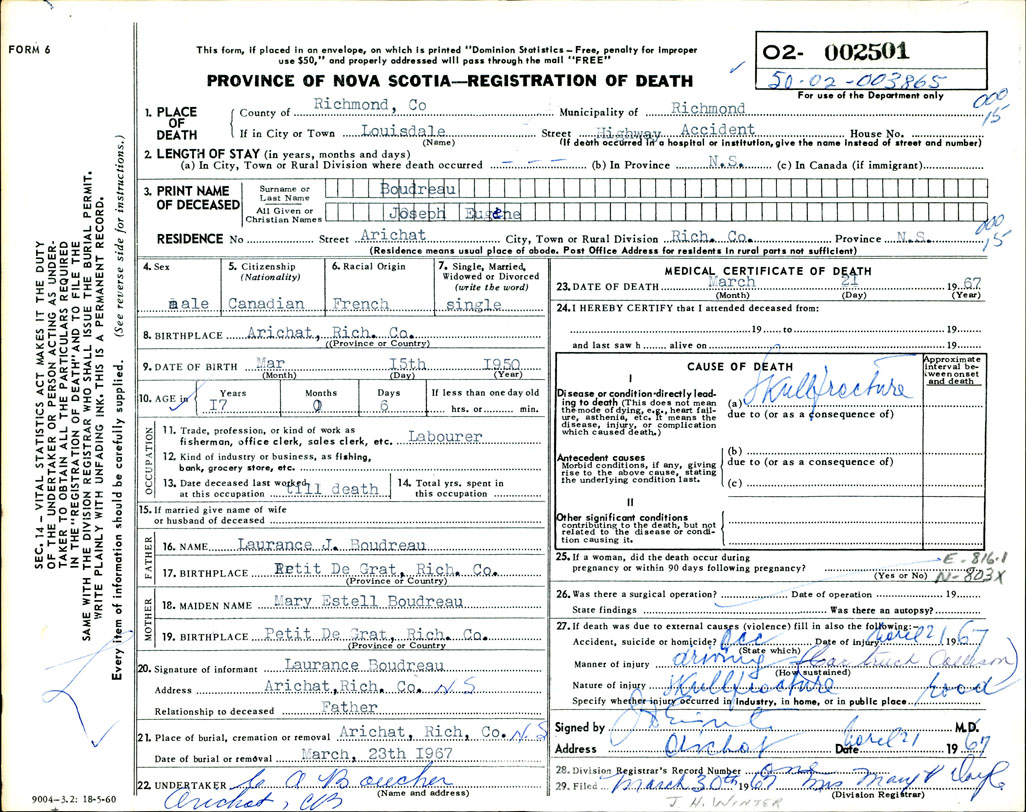 FORM 6
This form, if placed in an envelope, on which is printed "Dominion Statistics – Free, penalty for improper
use $50," and properly addressed will pass through the mail "FREE"
PROVINCE OF NOVA SCOTIA—REGISTRATION OF DEATH
O2- 002501
50-02-003865
For use of the Department only
000
15
1. PLACE OF DEATH
County of Richmond, Co Municipality of Richmond
If in City or Town Louisdale Street Highway Accident House No.
(Name) (If death occurred in a hospital or institution, give the name instead of street and number)
2. LENGTH OF STAY (in years, months and days)
(a) In City, Town or Rural Division where death occurred - - - (b) In Province N.S. (c) In Canada (if immigrant)
3. PRINT NAME OF DECEASED
Surname or Last Name Boudreau
All Given or Christian Names Joseph Eugene
000
15
RESIDENCE No Street Arichat City, Town or Rural Division Rich. Co. Province N.S.
(Residence means usual place of abode. Post Office Address for residents in rural parts not sufficient)
4. Sex male
5. Citizenship (Nationality) Canadian
6. Racial Origin French
7. Single, Married, Widowed or Divorced (write the word) single
8. BIRTHPLACE Arichat, Rich. Co.
(Province or Country)
9. DATE OF BIRTH Mar 15th 1950
(Month) (Day) (Year)
10. AGE in Years Months Days If less than one day old
17 0 6 hrs. or min.
OCCUPATION
11. Trade, profession, or kind of work as
fisherman, office clerk, sales clerk, etc. Labourer
12. Kind of industry or business, as fishing,
bank, grocery store, etc.
13. Date deceased last worked
at this occupation till death
14. Total yrs. spent in
this occupation
15. If married give name of wife
or husband of deceased
FATHER
16. NAME Laurance J. Boudreau
17. BIRTHPLACE Petit De Grat, Rich. Co.
(Province or Country)
MOTHER
18. MAIDEN NAME Mary Estell Boudreau
19. BIRTHPLACE Petit De Grat, Rich. Co.
(Province or Country
20. Signature of informant Laurance Boudreau
Address Arichat, Rich. Co. N S
Relationship to deceased Father
21. Place of burial, cremation or removal Arichat, Rich, Co. N.S
Date of burial or removal March, 23th 1967
22. UNDERTAKER C A Boucher
(Name and address)
Arichat, CB
MEDICAL CERTIFICATE OF DEATH
23. DATE OF DEATH March 21 1967
(Month) (Day) (Year)
24. I HEREBY CERTIFY that I attended deceased from:
19 to 19
and last saw h alive on 19
CAUSE OF DEATH
Approximate interval between onset and death
I
Disease or condition directly leading to death (This does not mean the mode of dying, e.g., heart failure, asthenia, etc. It means the disease, injury, or complication which caused death.)
(a) Skull fracture
due to (or as a consequence of)
Antecedent causes
Morbid conditions, if any, giving rise to the above cause, stating the underlying condition last.
(b)
due to (or as a consequence of)
(c)
II
Other significant conditions
contributing to the death, but not related to the disease or condition causing it.
25. If a woman, did the death occur during
pregnancy or within 90 days following pregnancy?
(Yes or No)
E-816.1
N-803X
26. Was there a surgical operation? Date of operation 19
State findings Was there an autopsy?
27. If death was due to external causes (violence) fill in also the following:-
Accident, suicide or homicide? Acc Date of injury 21 1967
(State which)
Manner of injury driving (Car truck Collision)
(How sustained)
Nature of injury Skull fracture
Specify whether injury occurred in industry, in home, or in public place road
Signed by M.D.
Address Arichat Date 21 1967
28. Division Registrar's Record Number one
29. Filed March 30th 1967 Mrs Mary
(Division Registrar)
J. H. WINTER
SEC. 14 – VITAL STATISTICS ACT MAKES IT THE DUTY
OF THE UNDERTAKER OR PERSON ACTING AS UNDER-
TAKER TO OBTAIN ALL THE PARTICULARS REQUIRED
IN THE "REGISTRATION OF DEATH" AND TO FILE THE
SAME WITH THE DIVISION REGISTRAR WHO SHALL ISSUE THE BURIAL PERMIT.
WRITE PLAINLY WITH UNFADING INK. THIS IS A PERMANENT RECORD.
Every item of information should be carefully supplied. (See reverse side for instructions.)
9004-3.2: 18-5-60